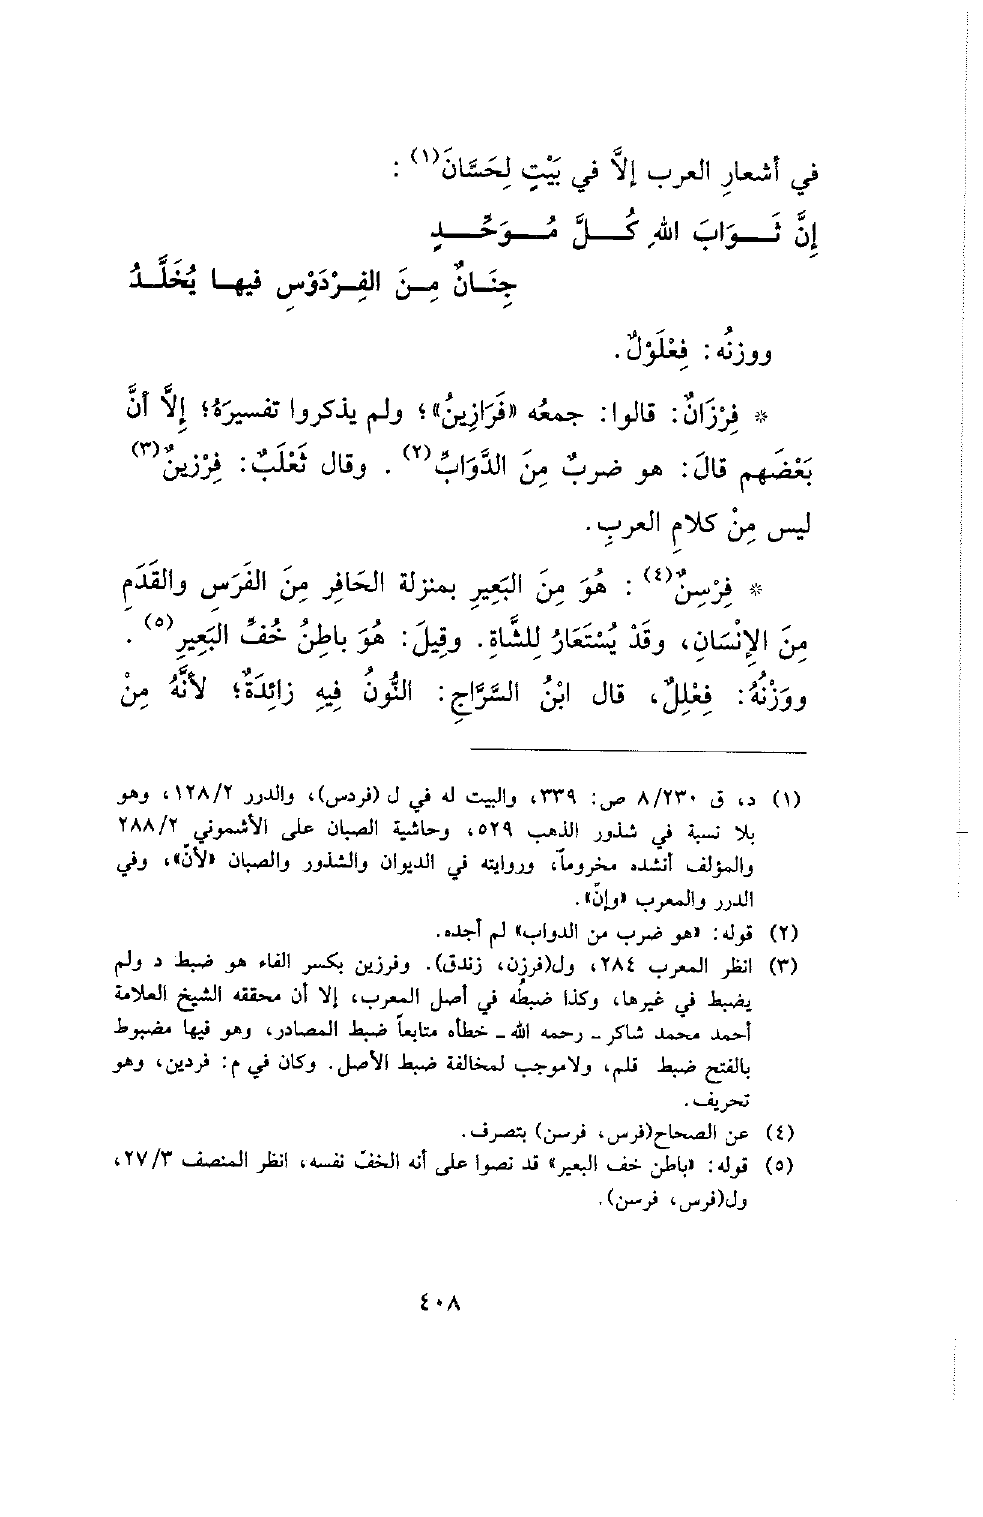 في أشعارِ العرب إلاَّ في بَيْتٍ لِحَسَّانَ(١) :
إِنَّ ثَـوَابَ اللهِ كُـلَّ مُـوَحِّـدٍ
جِنَـانٌ مِـنَ الفِـرْدَوْسِ فيهـا يُخَلَّـدُ
ووزنُه: فِعْلَوْلٌ.
* فِرْزَانٌ: قالوا: جمعُه «فَرَازِينُ»؛ ولم يذكروا تفسيرَهُ؛ إِلاَّ أنَّ
بَعْضَهم قالَ: هو ضربٌ مِنَ الدَّوَابِّ(٢) . وقال ثَعْلَبٌ: فِرْزينٌ(٣)
ليس مِنْ كلامِ العربِ.
* فِرْسِنٌ(٤) : هُوَ مِنَ البَعِيرِ بمنزلة الحَافِرِ مِنَ الفَرَسِ والقَدَمِ
مِنَ الإِنْسَانِ، وقَدْ يُسْتَعَارُ لِلشَّاةِ. وقِيلَ: هُوَ باطِنُ خُفِّ البَعِيرِ(٥) .
ووَزْنُهُ: فِعْلِلٌ، قال ابْنُ السَّرَّاجِ: النُّونُ فِيهِ زائِدَةٌ؛ لأنَّهُ مِنْ
(١) د، ق ٨/٢٣٠ ص: ٣٣٩، والبيت له في ل (فردس)، والدرر ١٢٨/٢، وهو
بلا نسبة في شذور الذهب ٥٢٩، وحاشية الصبان على الأشموني ٢٨٨/٢
والمؤلف أنشده مخروماً، وروايته في الديوان والشذور والصبان «لأنّ»، وفي
الدرر والمعرب «وإنّ».
(٢) قوله: «هو ضرب من الدواب» لم أجده.
(٣) انظر المعرب ٢٨٤، ول(فرزن، زندق). وفرزين بكسر الفاء هو ضبط د ولم
يضبط في غيرها، وكذا ضبطُه في أصل المعرب، إلا أن محققه الشيخ العلامة
أحمد محمد شاكر ـ رحمه الله ـ خطأه متابعاً ضبط المصادر، وهو فيها مضبوط
بالفتح ضبط قلم، ولاموجب لمخالفة ضبط الأصل. وكان في م: فردين، وهو
تحريف.
(٤) عن الصحاح(فرس، فرسن) بتصرف.
(٥) قوله: «باطن خف البعير» قد نصوا على أنه الخفّ نفسه، انظر المنصف ٢٧/٣،
ول(فرس، فرسن).
٤٠٨